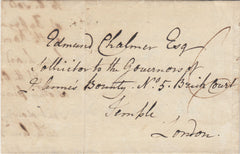 Edmund Chalmer Esq
Sollicitor to the Governors of
Q. Annes Bounty. No. 5. Brick Court
Temple
London.